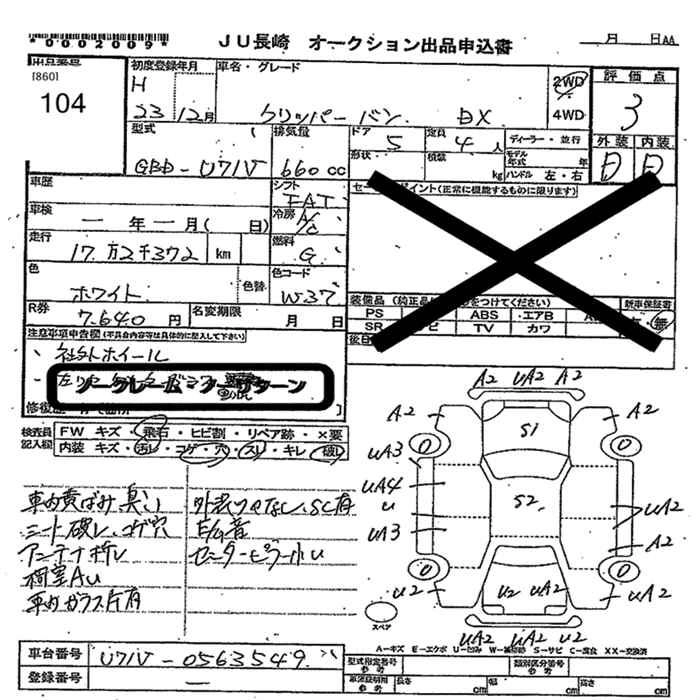 *0002009*
JU長崎 オークション出品申込書
月 日AA
出品番号
[860]
104
初度登録年月
H
23 12月
車名・グレード
クリッパー バン DX
2WD
4WD
評価点
3
外装 内装
D D
型式
GBD-U71V
排気量
660 cc
ドア
5
定員
4 人
ディーラー・並行
形状
積載
kg
モデル年式 年
ハンドル 左・右
車歴
シフト
FAT
車検
ー 年 ー 月( 日)
冷房
A/C
走行
17万2千372 km
燃料
G
色
ホワイト
色替
色コード
W37
R券
7,640 円
名変期限
月 日
ポイント(正常に機能するものに限ります)
装備品
をつけてください)
新車保証書
PS ABS エアB
有・無
SR TV カワ
注意事項申告欄(不具合内容等は具体的に記入して下さい)
社外ホイール
ノークレーム・ノーリターン
検査員記入欄
FW キズ・飛石・ヒビ割・リペア跡・×要
内装 キズ・汚レ・コゲ・穴・スレ・キレ・破レ
車内黄ばみ臭い
シート破レ、コゲ穴
アンテナ折レ
荷室AU
外装ツヤなし、SC有
センターピラー小U
A2 UA2 A2
A2 S1 A2
UA3
UA4
U S2 UA2
UA3 A2
U2 U2 UA2 UA2
UA2 UA2 U2
スペア
A-キズ E-エクボ U-凹ミ W-補修跡 S-サビ C-腐食 XX-交換済
車台番号
U71V-0563549
登録番号
ー
型式指定番号
参考
類別区分番号
参考
車庫証明用
参考
長さ cm
幅 cm
高さ cm